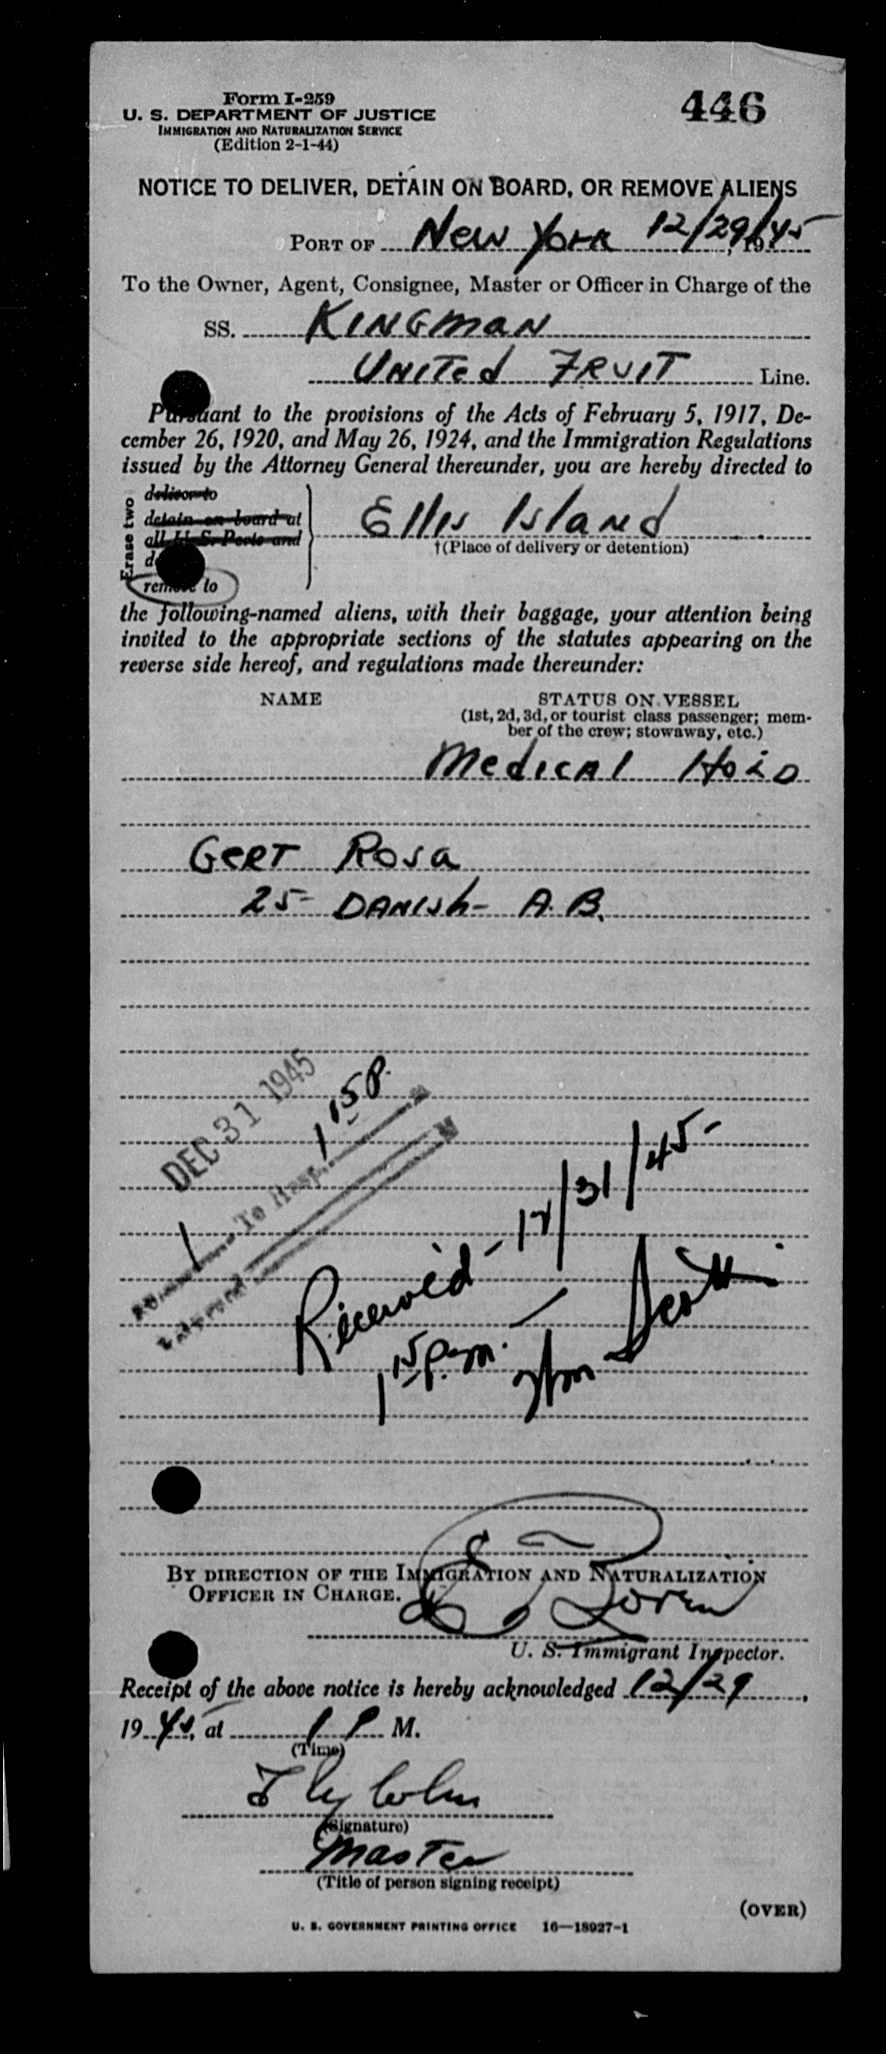 Form I-259
446
U. S. DEPARTMENT OF JUSTICE
IMMIGRATION AND NATURALIZATION SERVICE
(Edition 2-1-44)
NOTICE TO DELIVER, DETAIN ON BOARD, OR REMOVE ALIENS
PORT OF New York 12/29/, 1945
To the Owner, Agent, Consignee, Master or Officer in Charge of the
SS. KINGMAN
UNITED FRUIT Line.
Pursuant to the provisions of the Acts of February 5, 1917, De-
cember 26, 1920, and May 26, 1924, and the Immigration Regulations
issued by the Attorney General thereunder, you are hereby directed to
Erase two
deliver to
detain on board at
all U. S. Ports and
remove to
Ellis Island
†(Place of delivery or detention)
the following-named aliens, with their baggage, your attention being
invited to the appropriate sections of the statutes appearing on the
reverse side hereof, and regulations made thereunder:
NAME STATUS ON VESSEL
(1st, 2d, 3d, or tourist class passenger; mem-
ber of the crew; stowaway, etc.)
Medical Hold
Gert Rosa
25- Danish- A.B.
DEC 31 1945
1 15 P.
1 To Hosp.
Received - 12/31/45-
1 15 p.m. - Wm Scott
BY DIRECTION OF THE IMMIGRATION AND NATURALIZATION
OFFICER IN CHARGE.
U. S. Immigrant Inspector.
Receipt of the above notice is hereby acknowledged 12/29,
1945, at 1 P M.
(Time)
(Signature)
Master
(Title of person signing receipt)
(OVER)
U. S. GOVERNMENT PRINTING OFFICE 16—18927-1